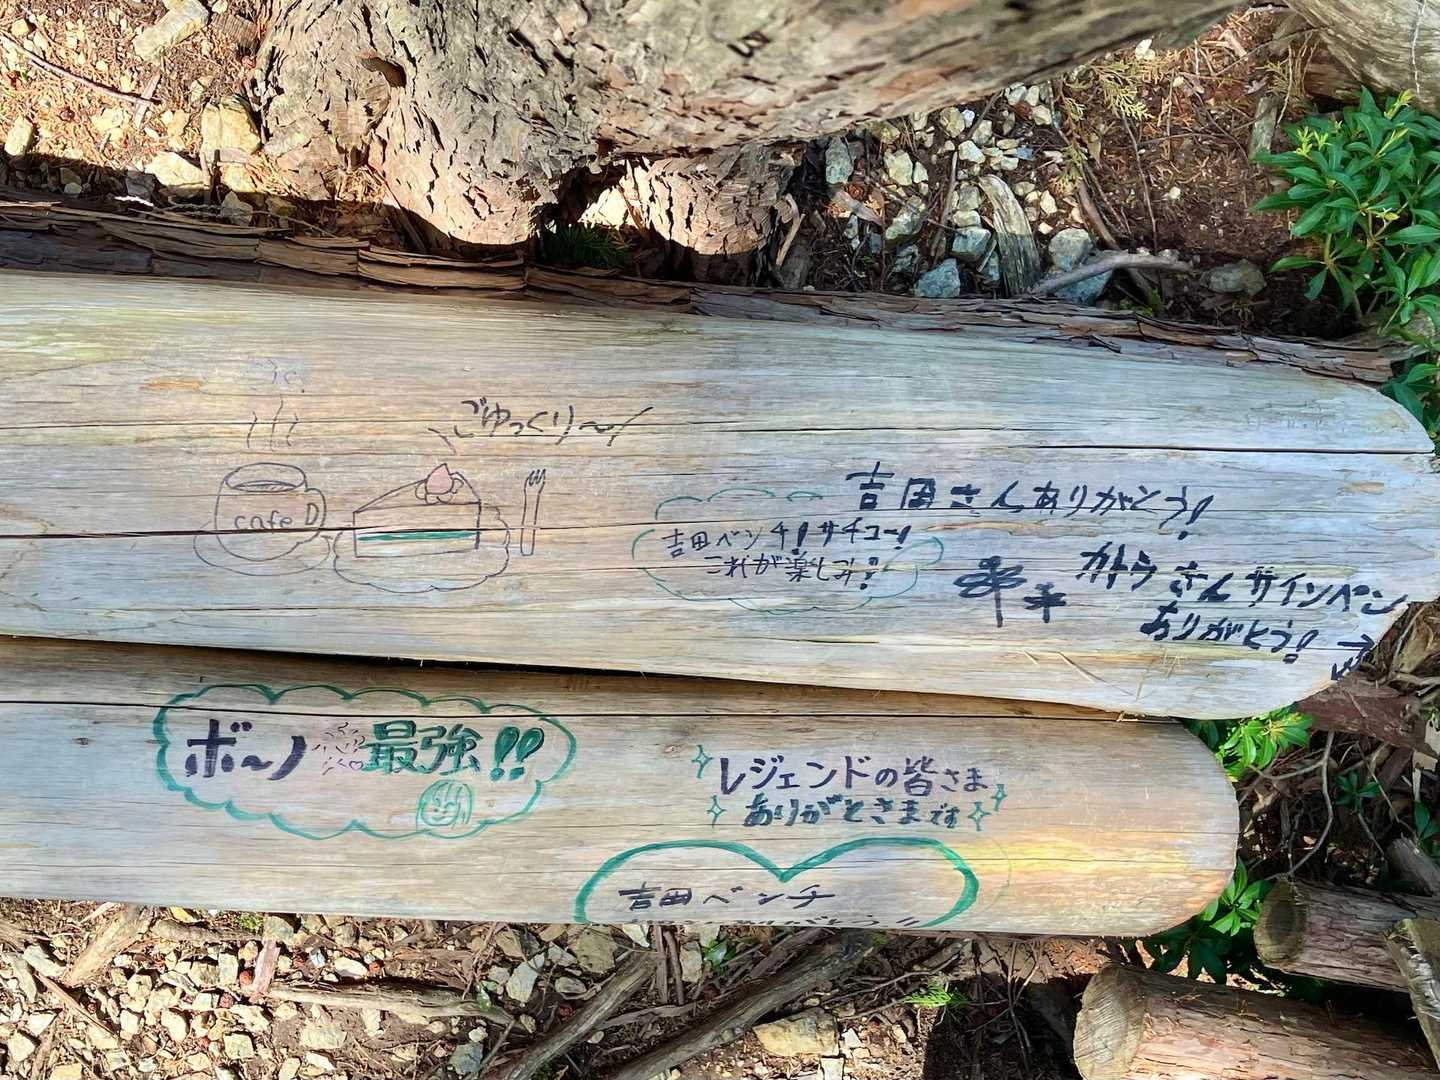 ごゆっくり～
cafe D
吉田さんありがとう!
吉田ベンチ!サチコー!
これが楽しみ!
カトウさんサインペン
ありがとう!
ボーノ最強!!
レジェンドの皆さま
ありがとさまです
吉田ベンチ
ありがとう